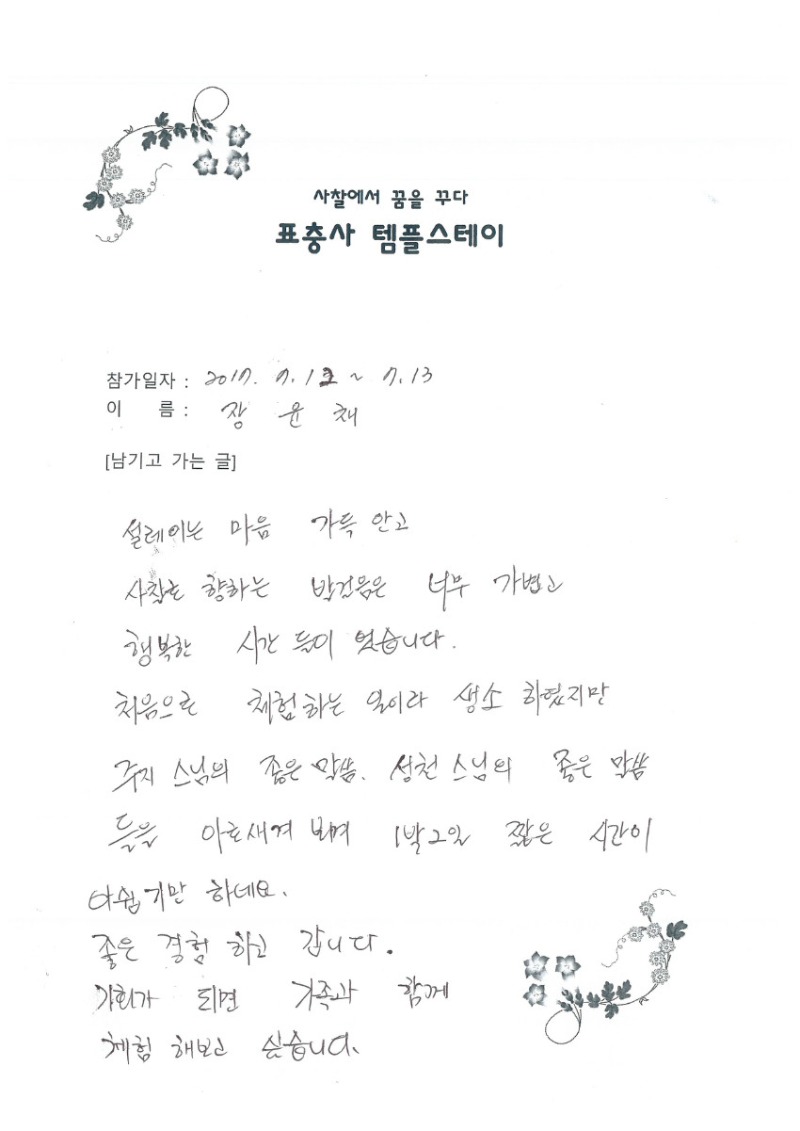 사찰에서 꿈을 꾸다
표충사 템플스테이
참가일자 : 2017. 7. 12 ~ 7. 13
이 름 : 장 윤 채
[남기고 가는 글]
설레이는 마음 가득 안고
사찰로 향하는 발걸음은 너무 가볍고
행복한 시간 들이 였습니다.
처음으로 체험하는 일이라 생소 하였지만
주지 스님의 좋은 말씀. 성천 스님의 좋은 말씀
들을 아로새겨 보며 1박2일 짧은 시간이
아쉽기만 하네요.
좋은 경험 하고 갑니다.
기회가 되면 가족과 함께
체험 해보고 싶습니다.